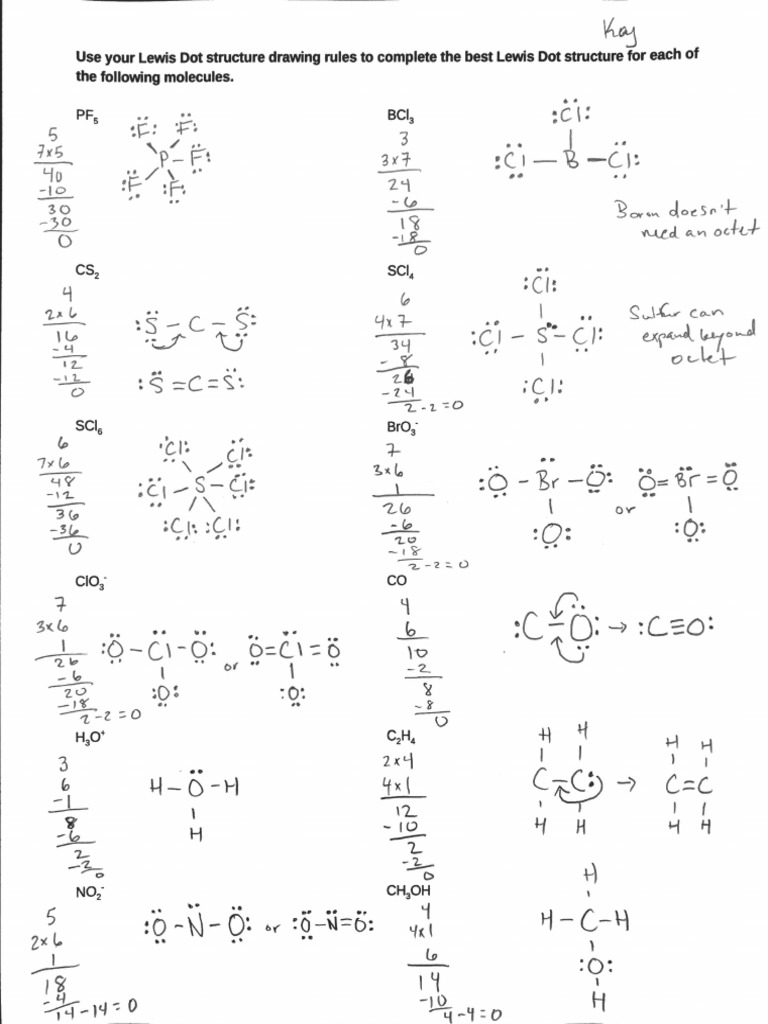 Key
Use your Lewis Dot structure drawing rules to complete the best Lewis Dot structure for each of
the following molecules.
PF5
5
7x5
40
-10
30
-30
0
F F
P - F
F F
BCl3
3
3x7
24
-6
18
-18
0
:Cl:
:Cl — B — Cl:
Boron doesn't
need an octet
CS2
4
2x6
16
-4
12
-12
0
:S - C - S:
:S = C = S:
SCl4
6
4x7
34
-8
26
-24
2 - 2 = 0
:Cl:
:Cl - S - Cl:
:Cl:
Sulfur can
expand beyond
octet
SCl6
6
7x6
48
-12
36
-36
0
:Cl: Cl:
:Cl - S - Cl:
:Cl: :Cl:
BrO3-
7
3x6
1
26
-6
20
-18
2 - 2 = 0
:O - Br - O: or O = Br = O
:O: :O:
ClO3-
7
3x6
1
26
-6
20
-18
2 - 2 = 0
:O - Cl - O: or O = Cl = O
:O: :O:
CO
4
6
10
-2
8
-8
0
:C = O: → :C≡O:
H3O+
3
6
-1
8
-6
2
-2
0
H - O - H
H
C2H4
2x4
4x1
12
-10
2
-2
0
H H
C = C: → C = C
H H
H H
H H
NO2-
5
2x6
1
18
-4
14 - 14 = 0
:O - N - O: or :O - N = O:
CH3OH
4
4x1
6
14
-10
4 - 4 = 0
H
H - C - H
:O:
H